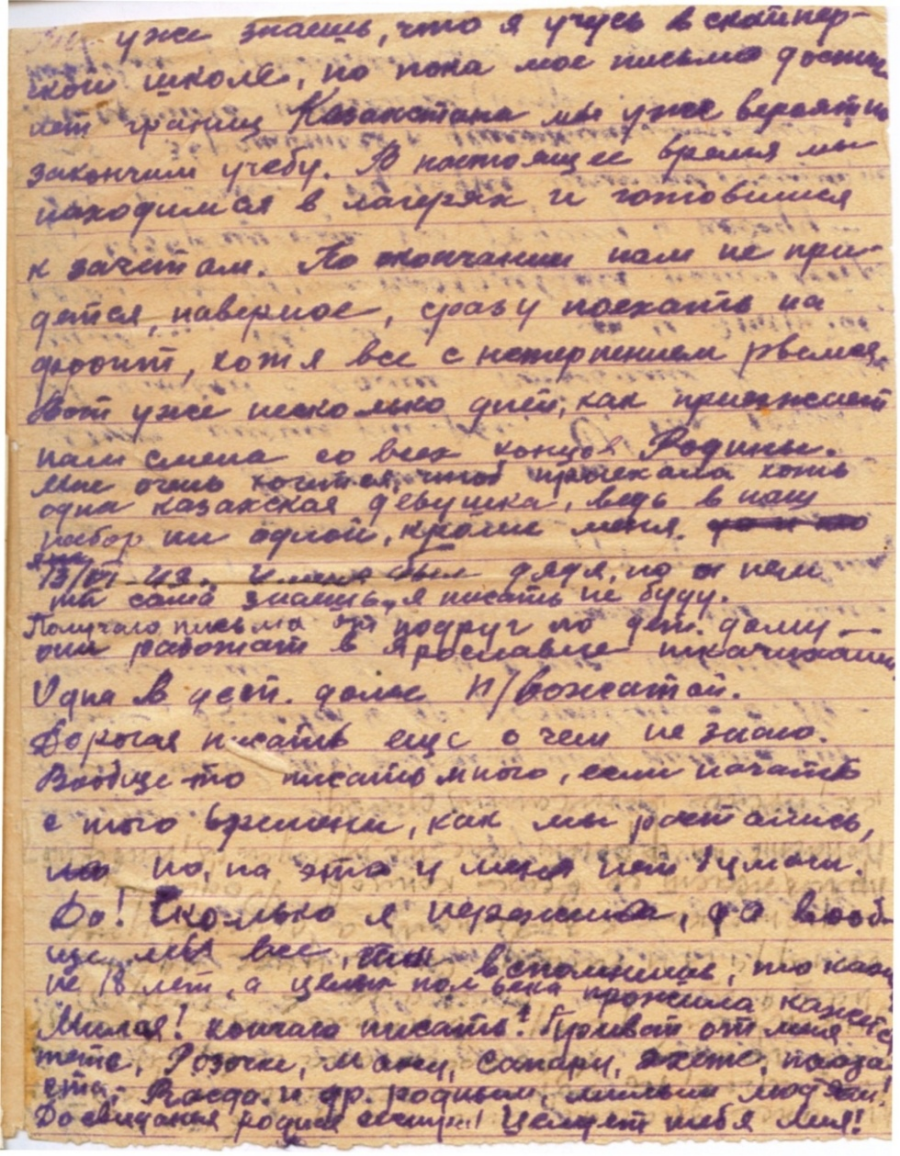 уже знаешь, что я учусь в снайпер-
ской школе, но пока мое письмо достиг-
нет границ Казахстана мы уже вероятно
закончим учебу. В настоящее время мы
находимся в лагерях и готовимся
к зачетам. По окончании нам не при-
дется, наверное, сразу поехать на
фронт, хотя все с нетерпением рвемся.
Вот уже несколько дней, как приезжает
нам смена со всех концов Родины.
Мне очень хочется, чтоб приехала хоть
одна казахская девушка, ведь в наш
набор ни одной, кроме меня.
У меня был дядя, но о нем
ты сама знаешь, я писать не буду.
Получаю письма от подруг по дет. дому
они работают в Ярославле ткачихами
Одна в дет. доме п/вожатой.
Дорогая писать еще о чем не знаю.
Вообще-то писать много, если начать
с того времени, как мы расстались,
но, на это у меня нет бумаги.
Да! Сколько я пережила, да вооб-
ще мы все, вспомнишь, то как
не 18 лет, а целых полвека прожила кажется
Милая! кончаю писать! Привет от меня
тете, Розочке, Сапару,
и др. родным, милым людям!
До свидания родная сестра! Целует тебя Лия!